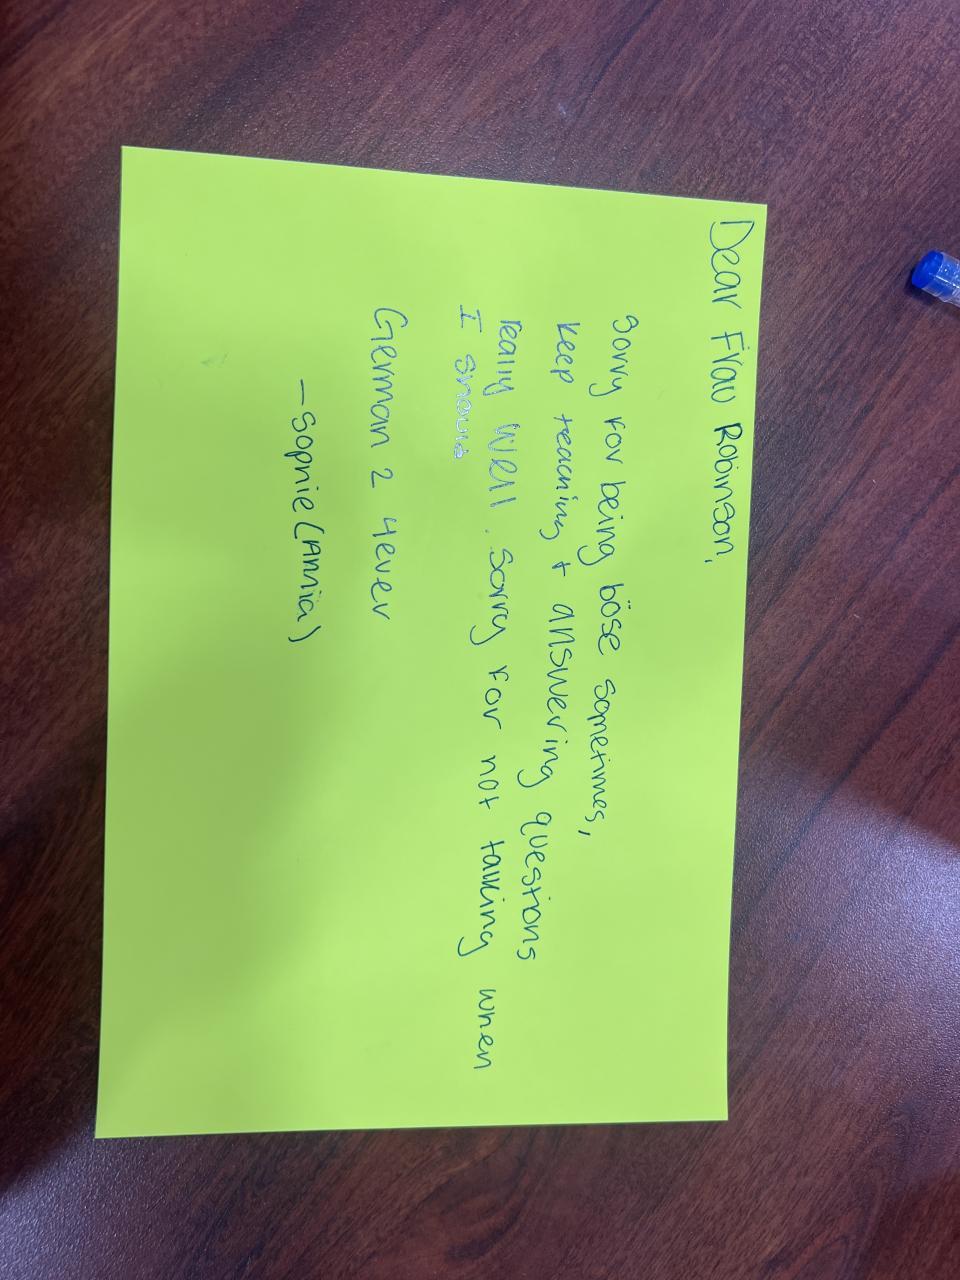 Dear Frau Robinson,
Sorry for being böse sometimes,
Keep teaching + answering questions
really well. Sorry for not talking when
I should
German 2 4ever
- Sophie (Annia)